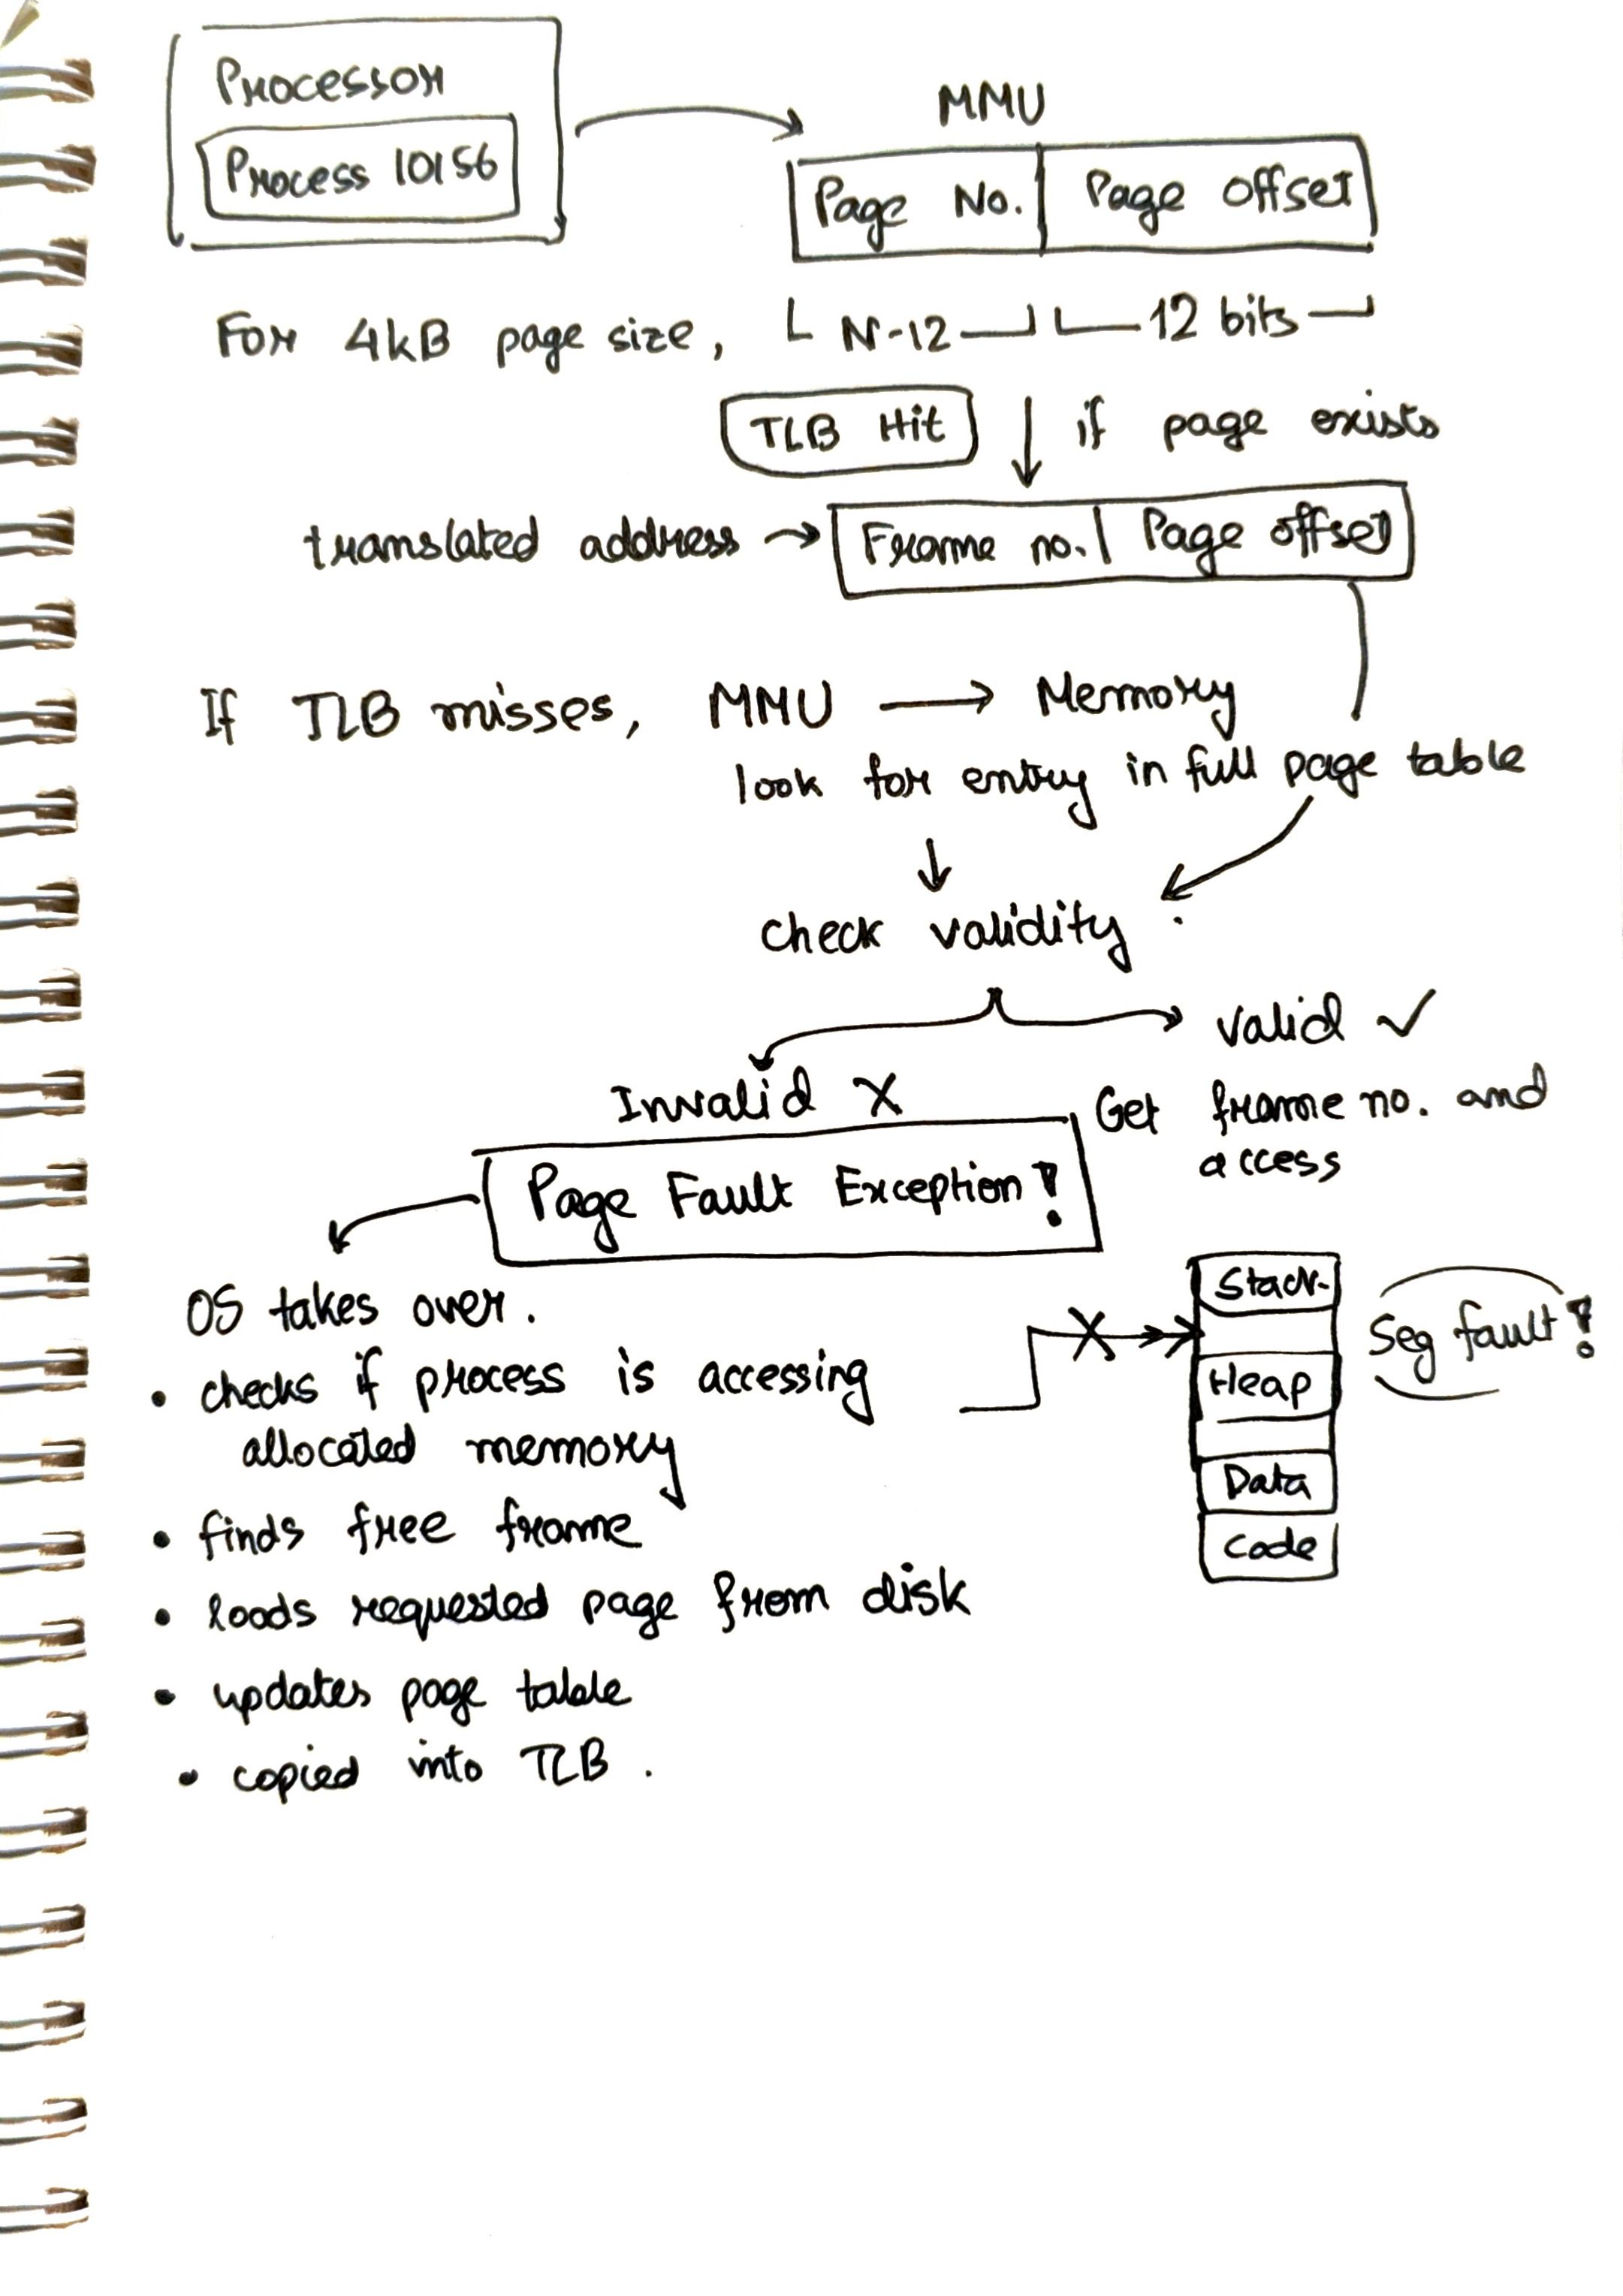 Processor
Process 10156
MMU
Page No. Page Offset
For 4kB page size, N-12 12 bits
TLB Hit if page exists
translated address → Frame no. Page offset
If TLB misses, MMU → Memory
look for entry in full page table
check validity
valid ✓
Invalid X
Get frame no. and
access
Page Fault Exception!
OS takes over.
• checks if process is accessing
allocated memory
• finds free frame
• loads requested page from disk
• updates page table
• copied into TLB.
Stack
Heap
Data
Code
Seg fault!